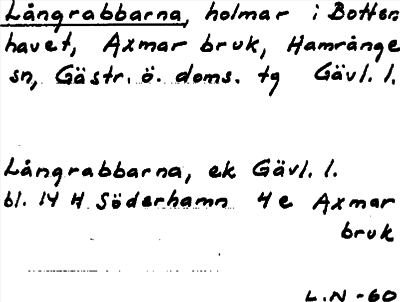 Långrabbarna, holmar i Botten
havet, Axmar bruk, Hamrånge
sn, Gästr. ö. doms. tg Gävl. l.
Långrabbarna, ek Gävl. l.
bl. 14 H Söderhamn 4 e Axmar
bruk
L.N -60